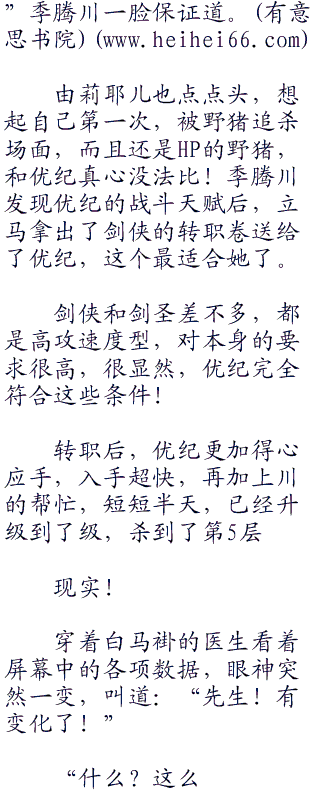 ”季腾川一脸保证道。(有意
思书院)(www.heihei66.com)
由莉耶儿也点点头，想
起自己第一次，被野猪追杀
场面，而且还是HP的野猪，
和优纪真心没法比！季腾川
发现优纪的战斗天赋后，立
马拿出了剑侠的转职卷送给
了优纪，这个最适合她了。
剑侠和剑圣差不多，都
是高攻速度型，对本身的要
求很高，很显然，优纪完全
符合这些条件！
转职后，优纪更加得心
应手，入手超快，再加上川
的帮忙，短短半天，已经升
级到了级，杀到了第5层
现实！
穿着白马褂的医生看着
屏幕中的各项数据，眼神突
然一变，叫道：“先生！有
变化了！”
“什么？这么